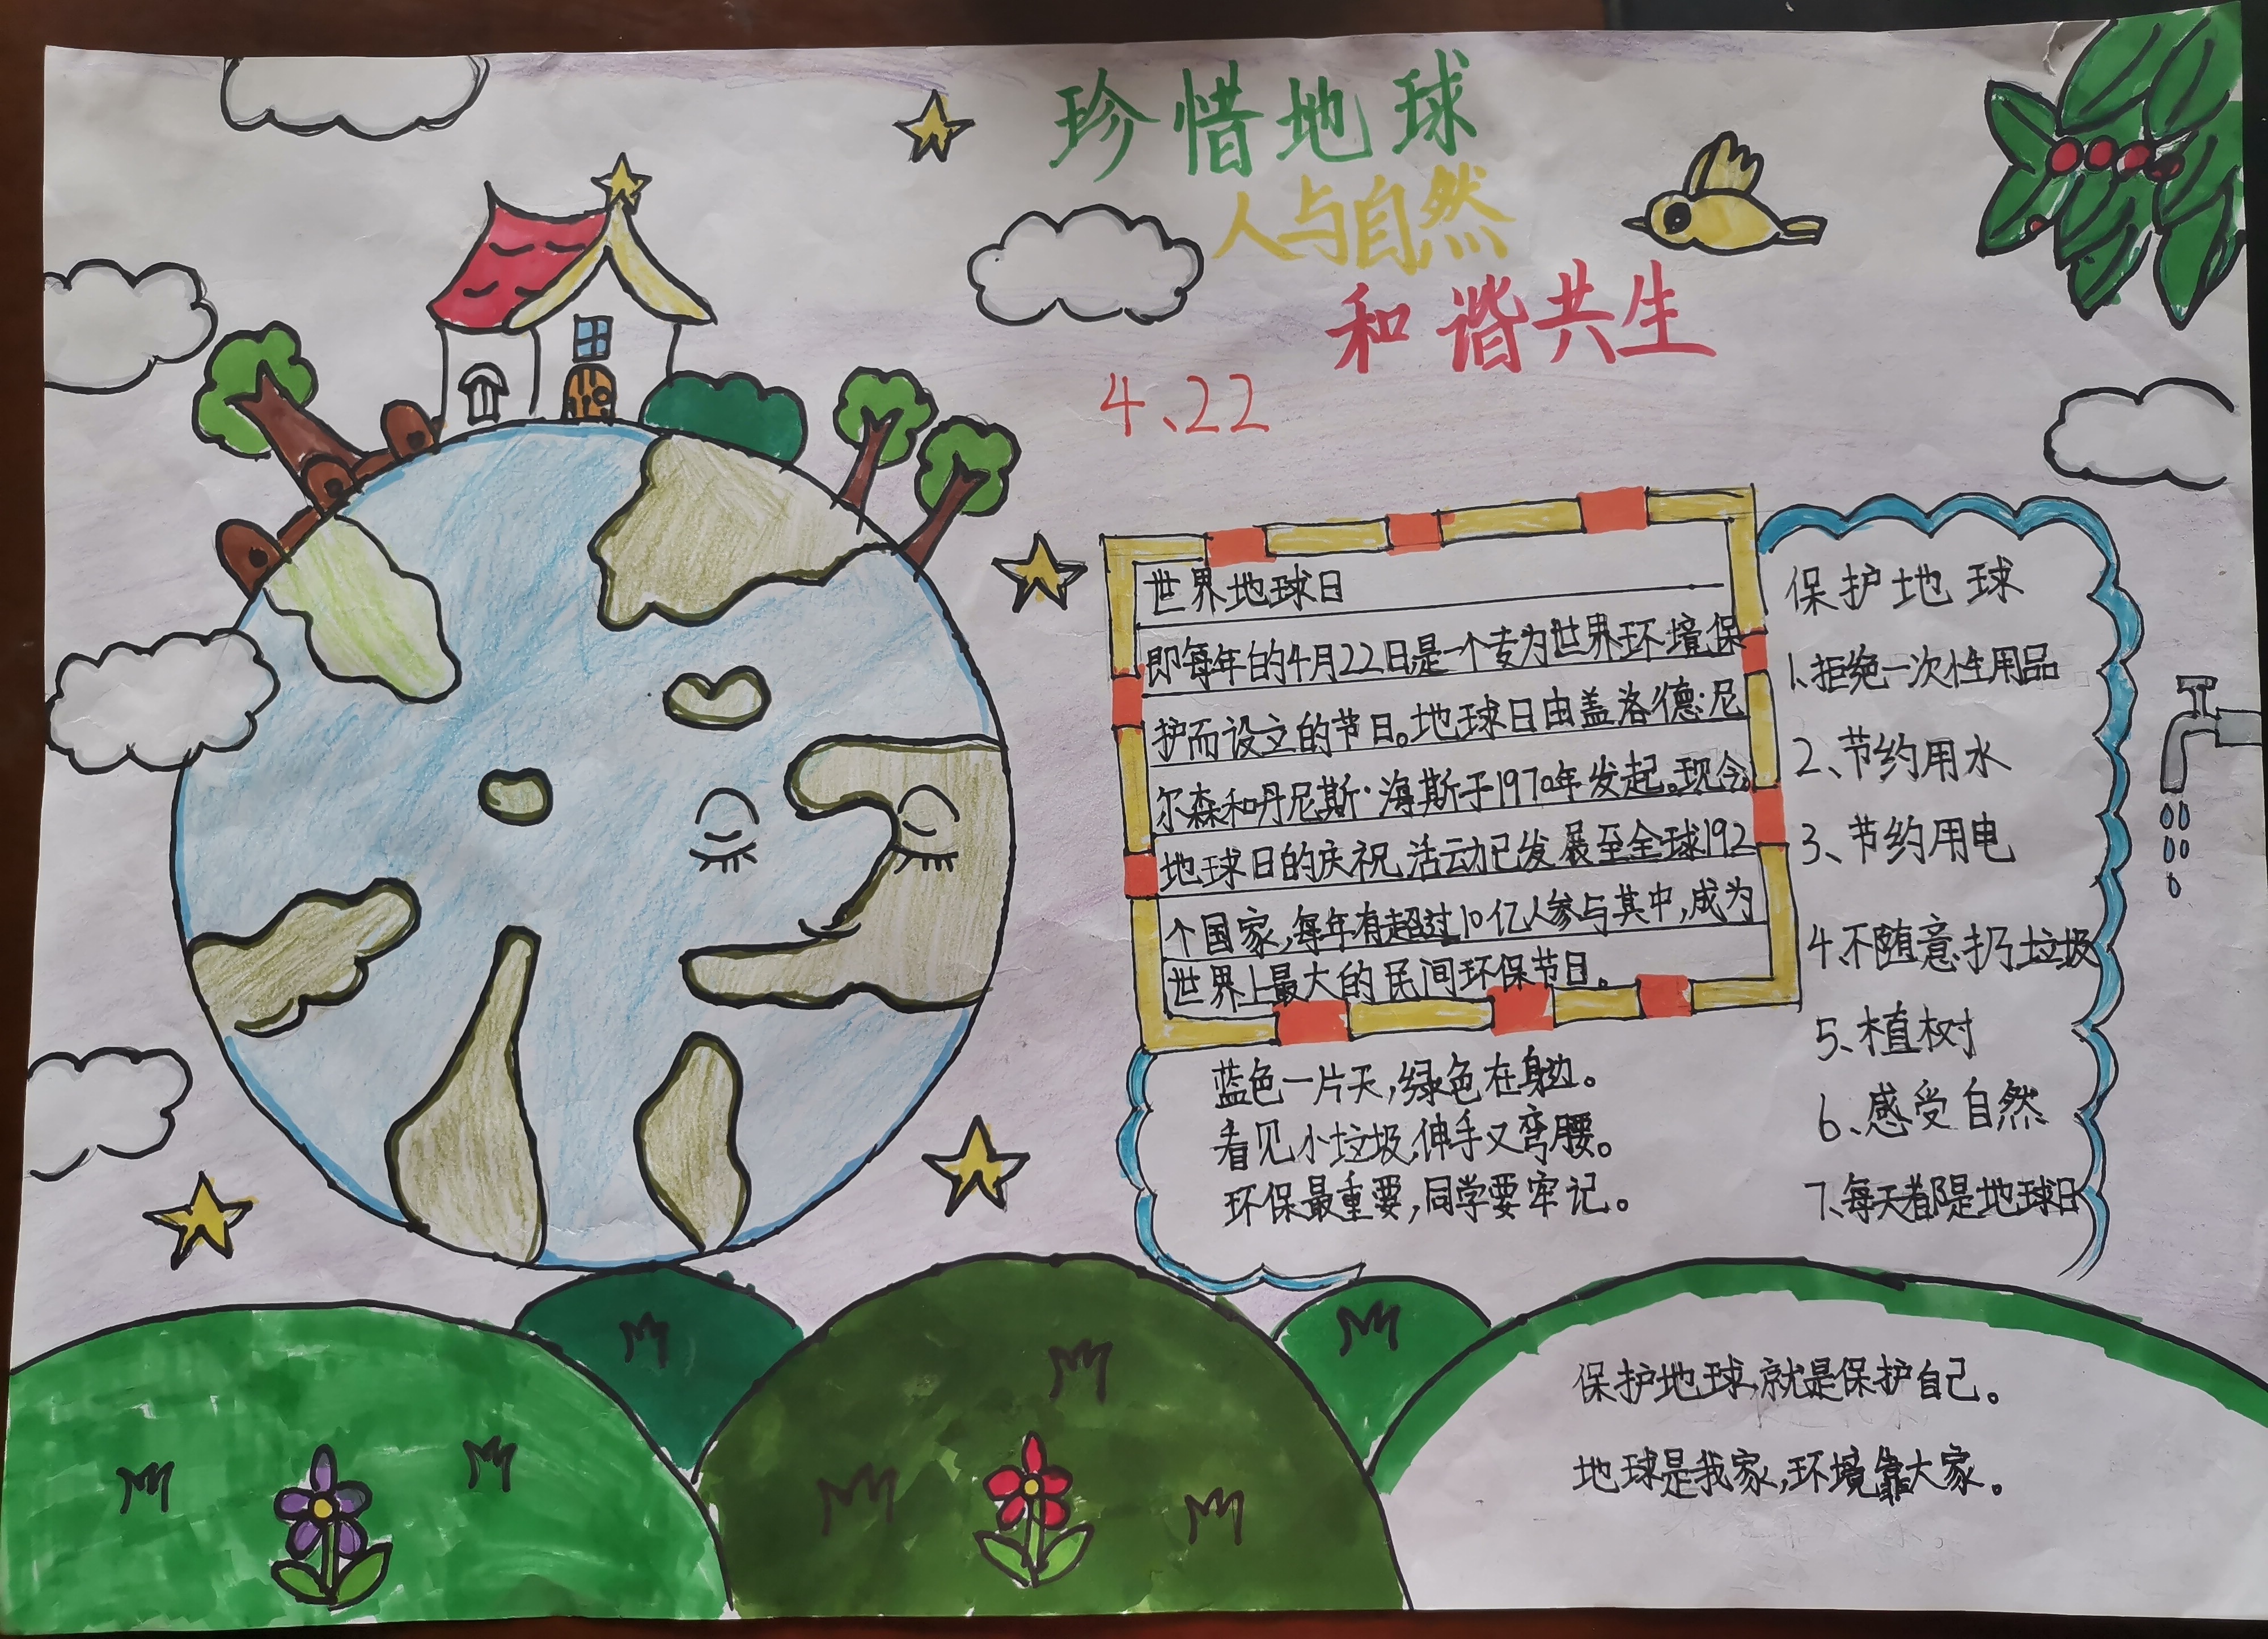 珍惜地球
人与自然
和谐共生
4、22
世界地球日
即每年的4月22日是一个专为世界环境保
护而设立的节日。地球日由盖洛德·尼
尔森和丹尼斯·海斯于1970年发起。现今,
地球日的庆祝活动已发展至全球192
个国家,每年有超过10亿人参与其中,成为
世界上最大的民间环保节日。
保护地球
1、拒绝一次性用品
2、节约用水
3、节约用电
4、不随意扔垃圾
5、植树
6、感受自然
7、每天都是地球日
蓝色一片天,绿色在身边。
看见小垃圾,伸手又弯腰。
环保最重要,同学要牢记。
保护地球,就是保护自己。
地球是我家,环境靠大家。